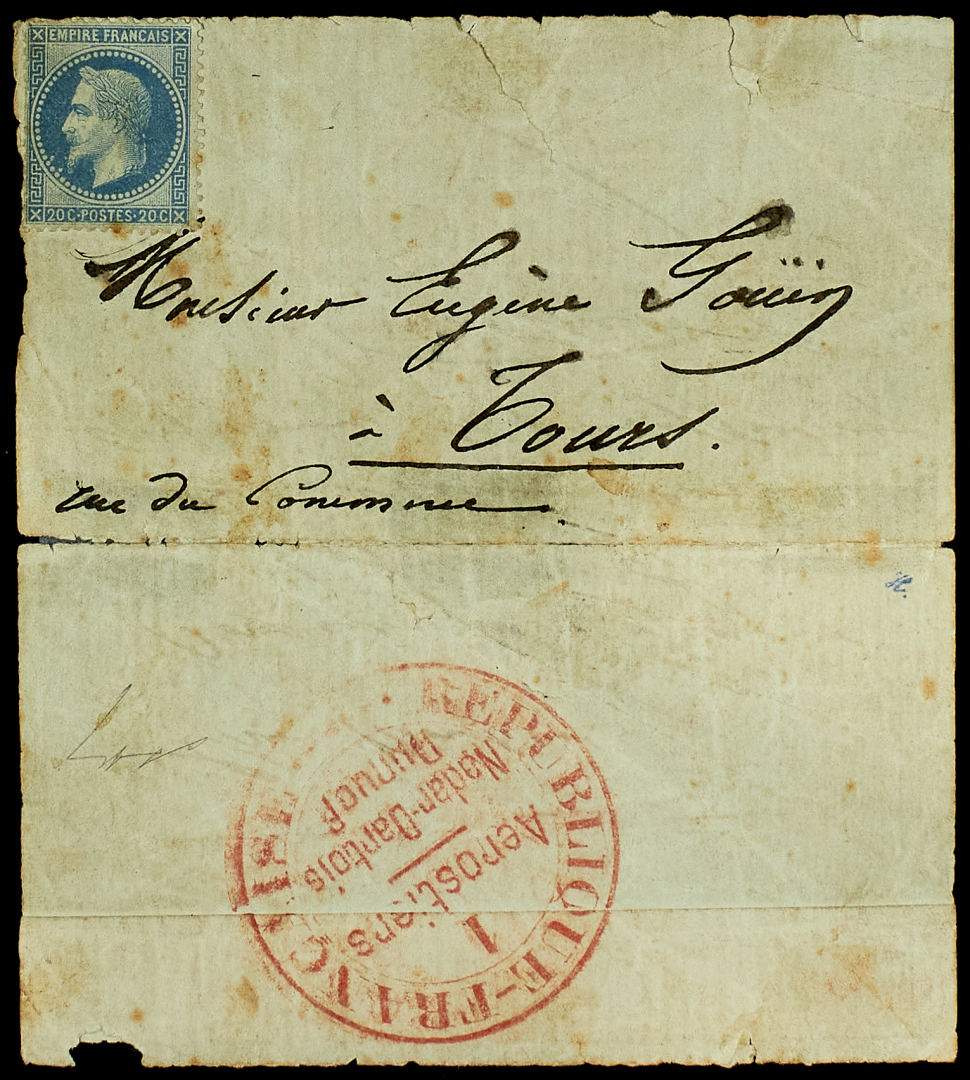 EMPIRE FRANCAIS
20C·POSTES·20C
Monsieur Eugène Goüin
à Tours.
rue du Commerce
REPUBLIQUE-FRANCAISE
1
Aerostiers
Nadar-Dartois
Duruof